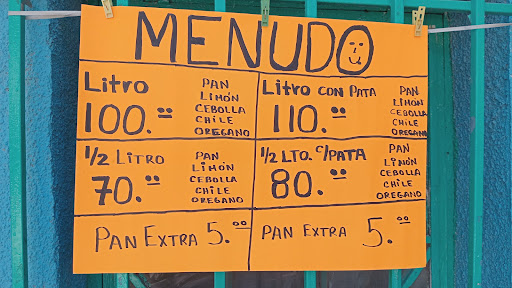 MENUDO
Litro
100.00
PAN
LIMÓN
CEBOLLA
CHILE
OREGANO
Litro CON PATA
110.00
PAN
LIMÓN
CEBOLLA
CHILE
OREGANO
1/2 LITRO
70.00
PAN
LIMÓN
CEBOLLA
CHILE
OREGANO
1/2 LTO. C/PATA
80.00
PAN
LIMÓN
CEBOLLA
CHILE
OREGANO
PAN EXTRA 5.00
PAN EXTRA 5.00